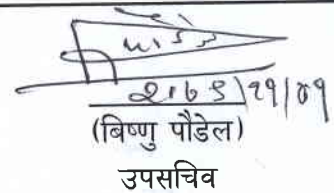 २०७९|११|०१
(बिष्णु पौडेल)
उपसचिव